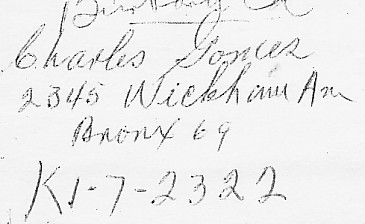 Charles Gomez
2345 Wickham Av
Bronx 69
KI-7-2322